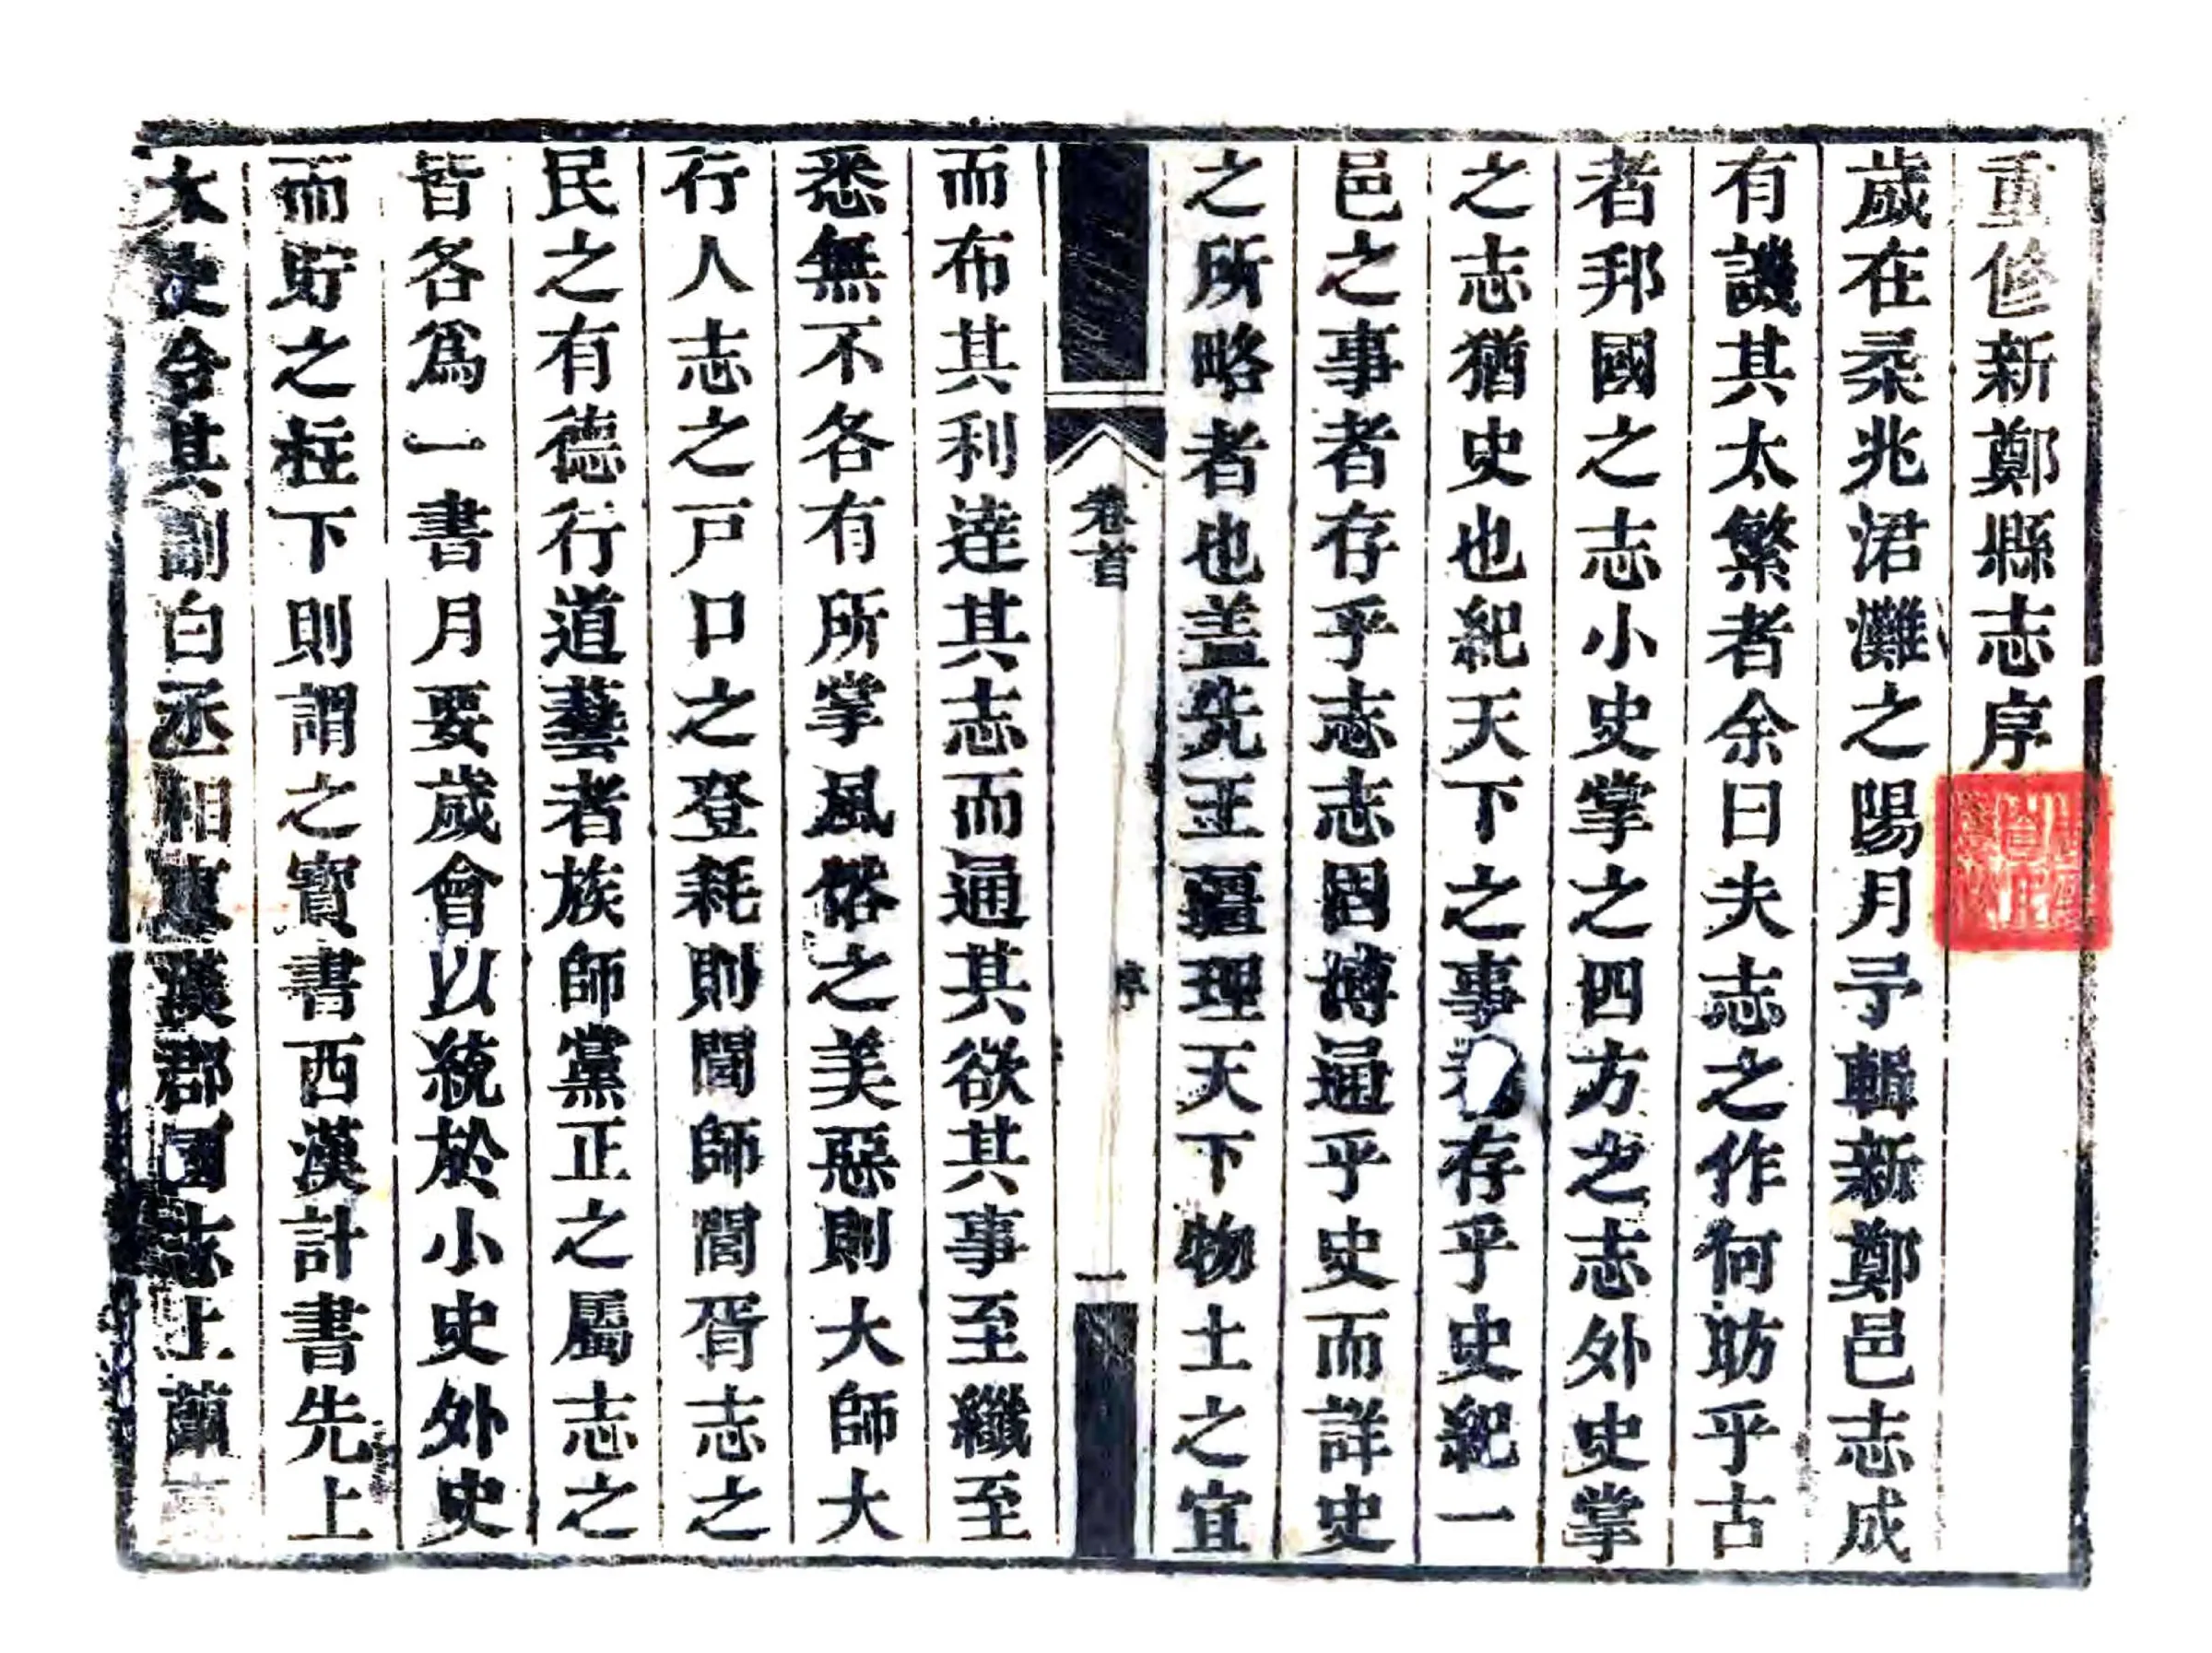 重修新鄭縣志序
歲在柔兆涒灘之陽月予輯新鄭邑志成
有譏其太繁者余曰夫志之作何昉乎古
者邦國之志小史掌之四方之志外史掌
之志猶史也紀天下之事者存乎史紀一
邑之事者存乎志志固博通乎史而詳史
之所略者也盖先王疆理天下物土之宜
卷首
序
一
而布其利達其志而通其欲其事至纖至
悉無不各有所掌風俗之美惡則大師大
行人志之戸口之登耗則閭師閭胥志之
民之有德行道藝者族師黨正之屬志之
皆各爲一書月要歲會以統於小史外史
而貯之柱下則謂之寳書西漢計書先上
太史令其副白丞相東漢郡國志上蘭